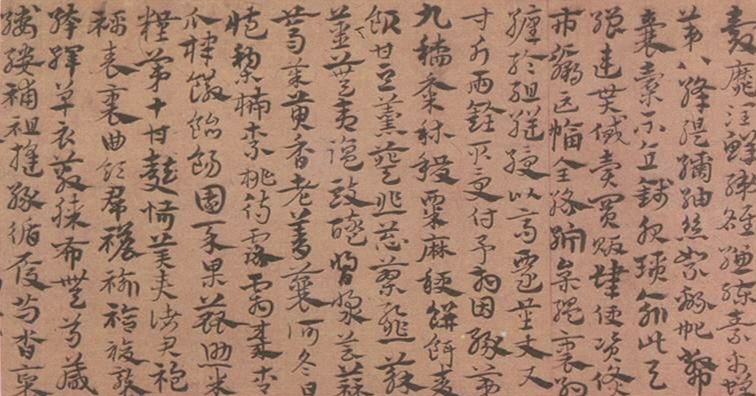 縑練素帛蟬
第八絳緹絓紬絲絮綿㠴敝
囊橐不直錢服瑣緰此與
繒連貰貸賣買販肆便資貨
市贏匹幅全綌紵枲縕裹約
纏綸組縌綬以高遷量丈尺
寸斤兩銓取受付予相因緣第
九稻黍秫稷粟麻秔餅餌麥
飯甘豆羹葵韭蔥蓼䪥蘇
薑蕪荑鹽豉醯酢醬芸蒜
芥茱萸香老菁蘘荷冬日
藏梨柿柰桃待露霜棗杏
瓜棣饊飴餳園菜果蓏助米
糧第十甘麩恬美奏諸君袍
襦表裏曲領裙襜褕袷複褶
襌衣蔽膝布毋
縷補縫緣履舄